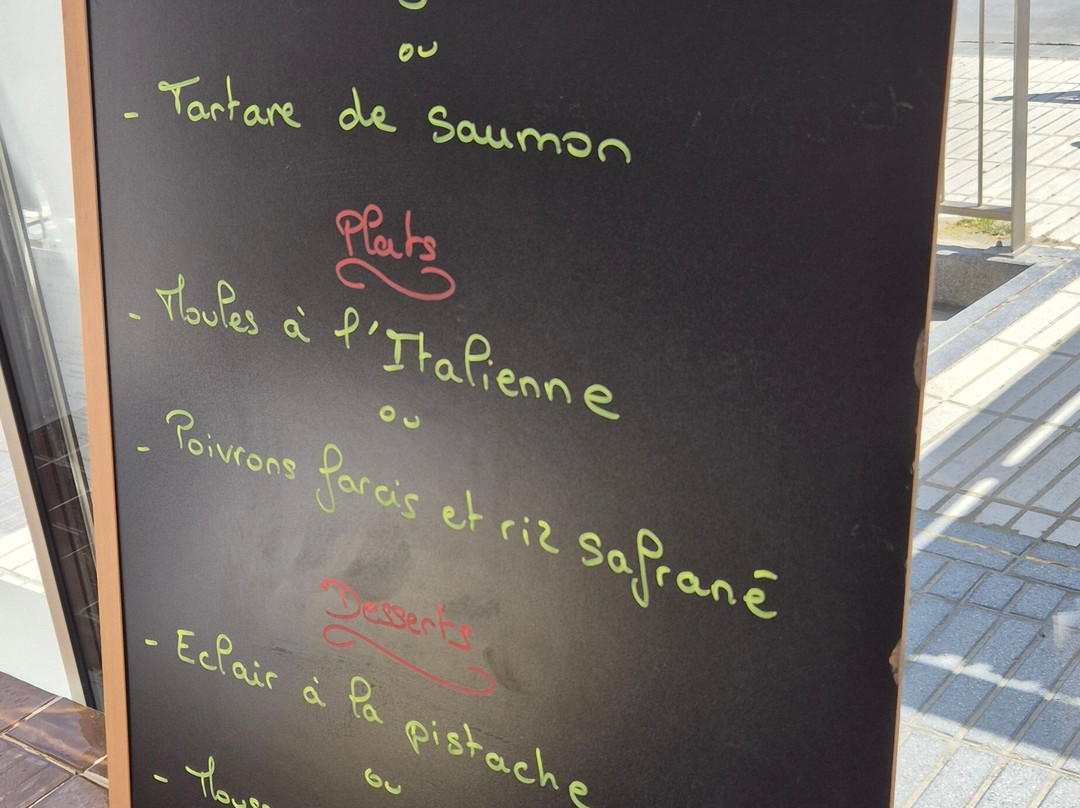 ou
- Tartare de saumon
Plats
- Moules à l'Italienne
ou
- Poivrons farcis et riz safrané
Desserts
- Eclair à la pistache
ou